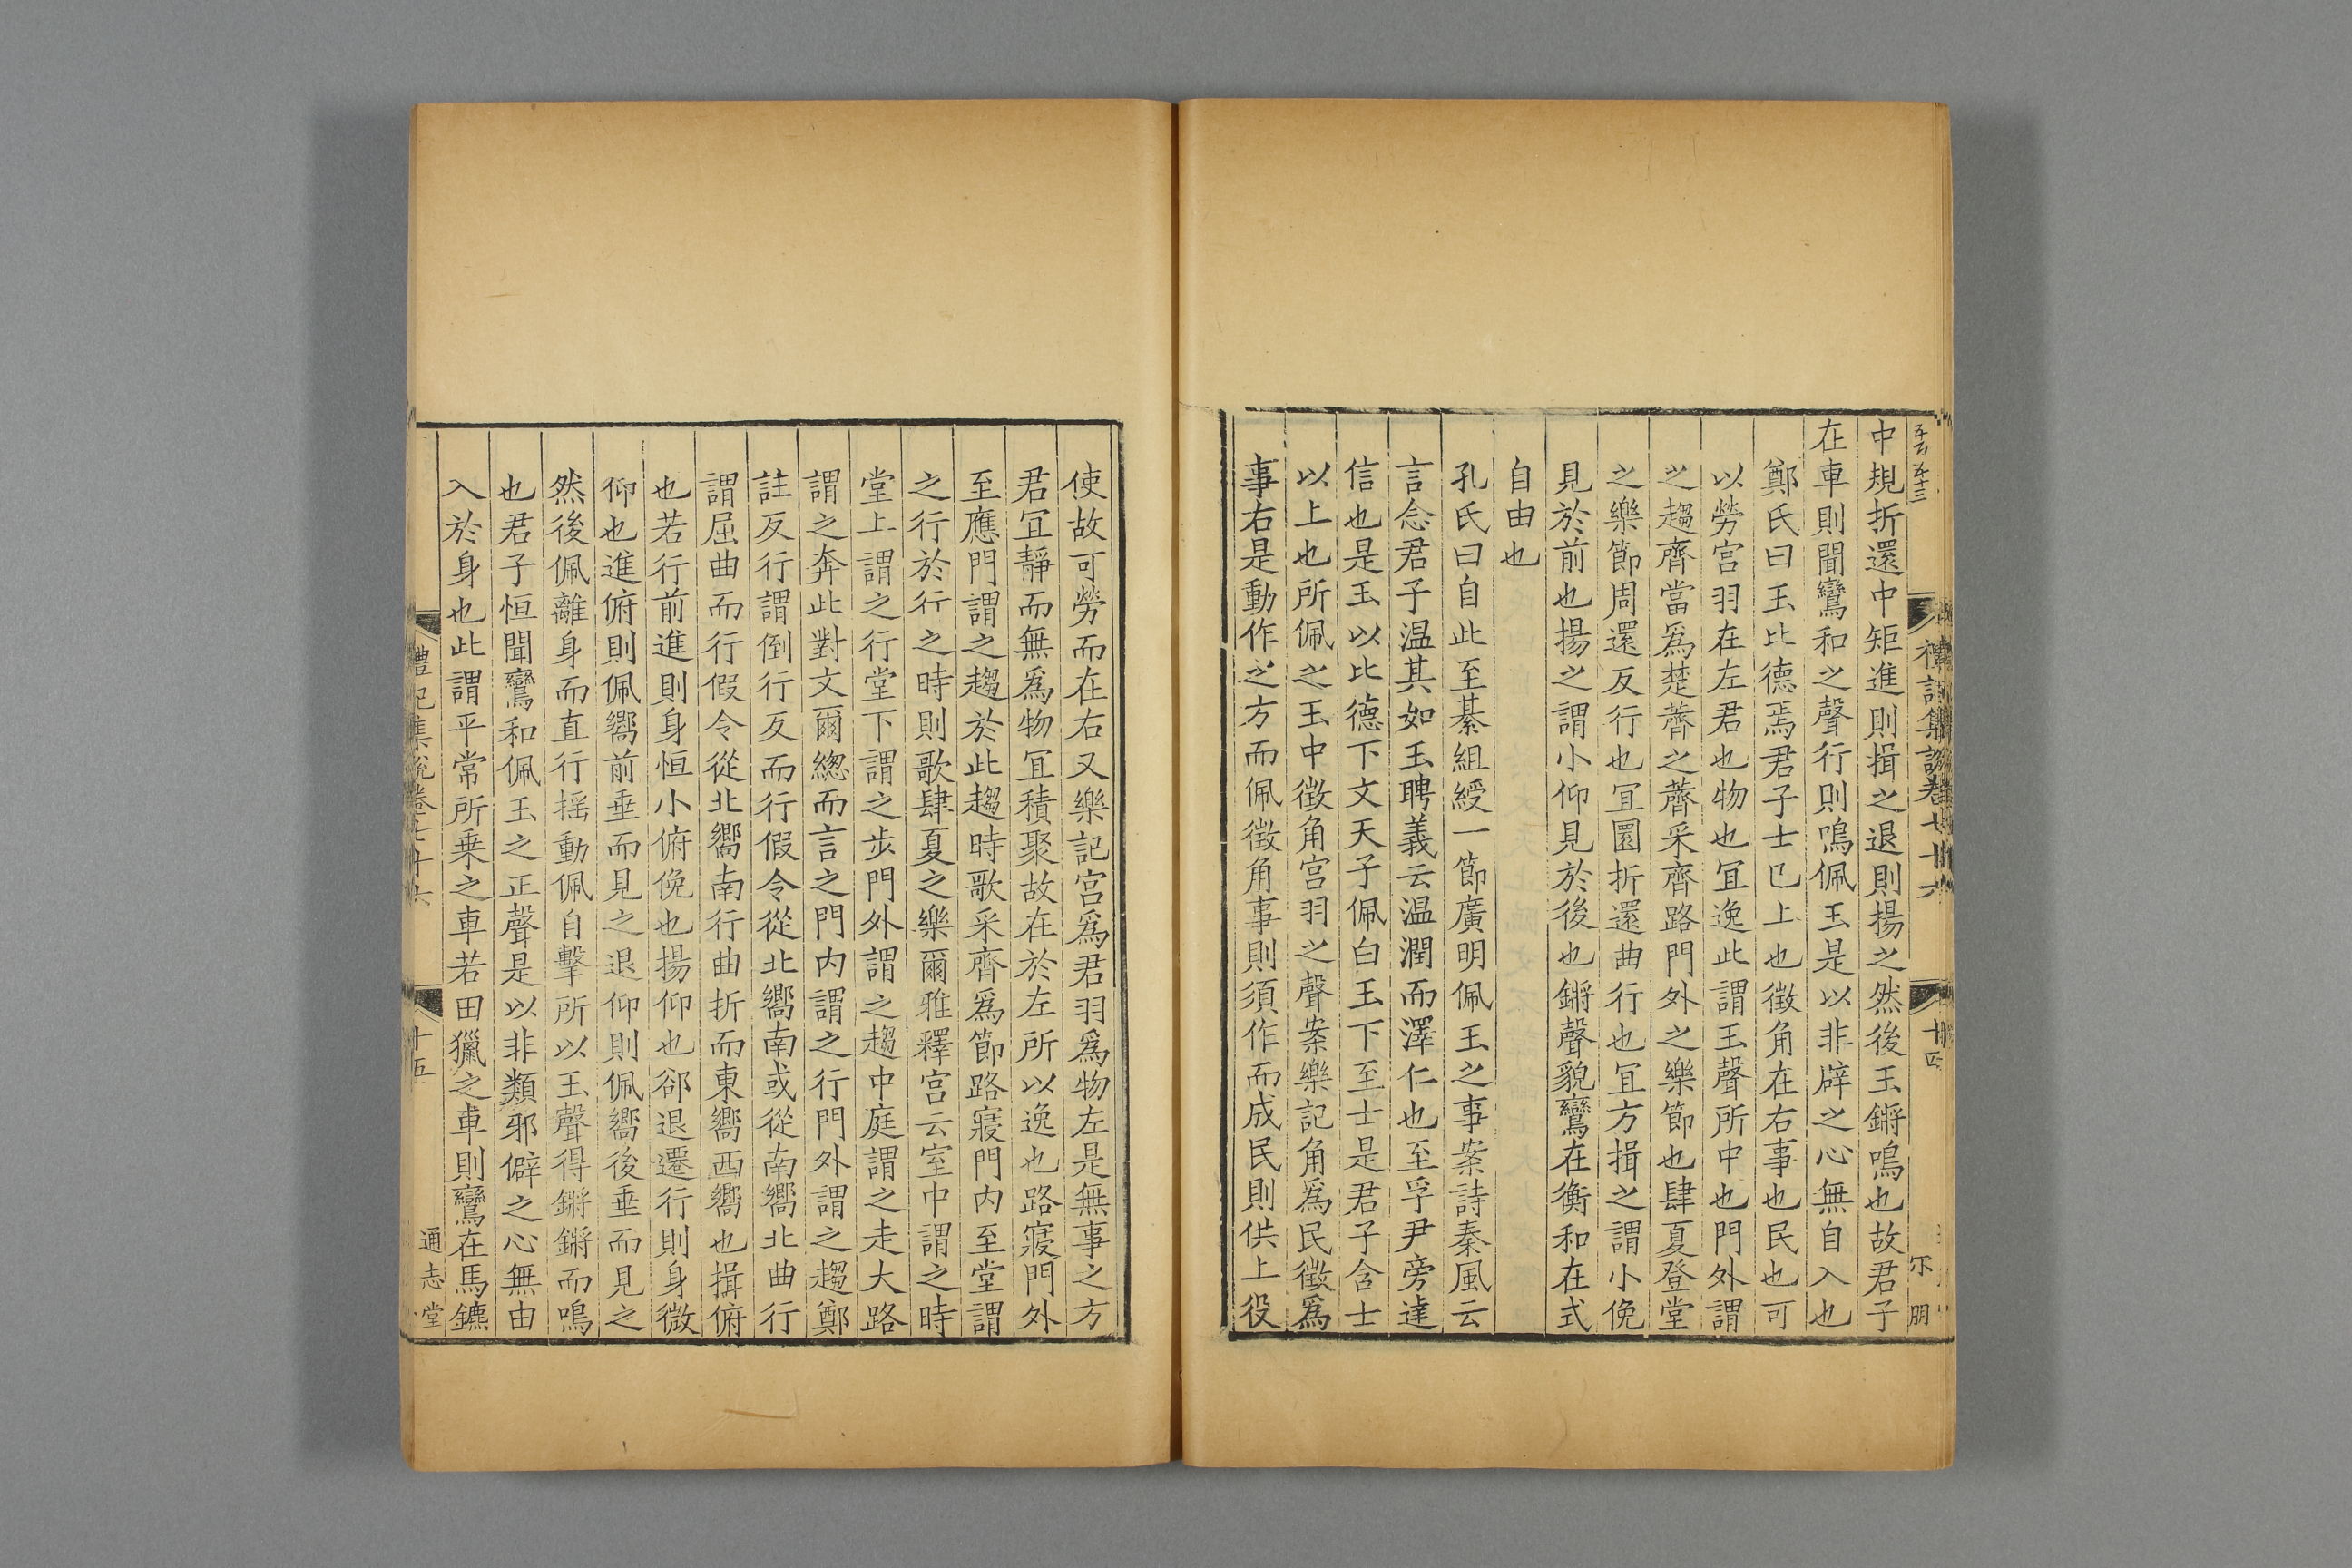 禮記集說卷七十六
十四
中規折還中矩進則揖之退則揚之然後玉鏘鳴也故君子
在車則聞鸞和之聲行則鳴佩玉是以非辟之心無自入也
鄭氏曰玉比德焉君子士已上也徵角在右事也民也可
以勞宫羽在左君也物也冝逸此謂玉聲所中也門外謂
之趨齊當爲楚薺之薺采齊路門外之樂節也肆夏登堂
之樂節周還反行也冝圜折還曲行也冝方揖之謂小俛
見於前也揚之謂小仰見於後也鏘聲貌鸞在衡和在式
自由也
孔氏曰自此至綦組綬一節廣明佩玉之事案詩秦風云
言念君子温其如玉聘義云温潤而澤仁也至孚尹旁達
信也是玉以比德下文天子佩白玉下至士是君子含士
以上也所佩之玉中徵角宫羽之聲案樂記角爲民徵爲
事右是動作之方而佩徵角事則須作而成民則供上役
使故可勞而在右又樂記宫爲君羽爲物左是無事之方
君冝靜而無爲物冝積聚故在於左所以逸也路寢門外
至應門謂之趨於此趨時歌采齊爲節路寢門内至堂謂
之行於行之時則歌肆夏之樂爾雅釋宫云室中謂之時
堂上謂之行堂下謂之步門外謂之趨中庭謂之走大路
謂之奔此對文爾緫而言之門内謂之行門外謂之趨鄭
註反行謂倒行反而行假令從北嚮南或從南嚮北曲行
謂屈曲而行假令從北嚮南行曲折而東嚮西嚮也揖俯
也若行前進則身恒小俯俛也揚仰也郤退還行則身微
仰也進俯則佩嚮前垂而見之退仰則佩嚮後垂而見之
然後佩離身而直行摇動佩自擊所以玉聲得鏘鏘而鳴
也君子恒聞鸞和佩玉之正聲是以非類邪僻之心無由
入於身也此謂平常所乗之車若田獵之車則鸞在馬鑣
禮記集說卷七十六
十五
通志堂